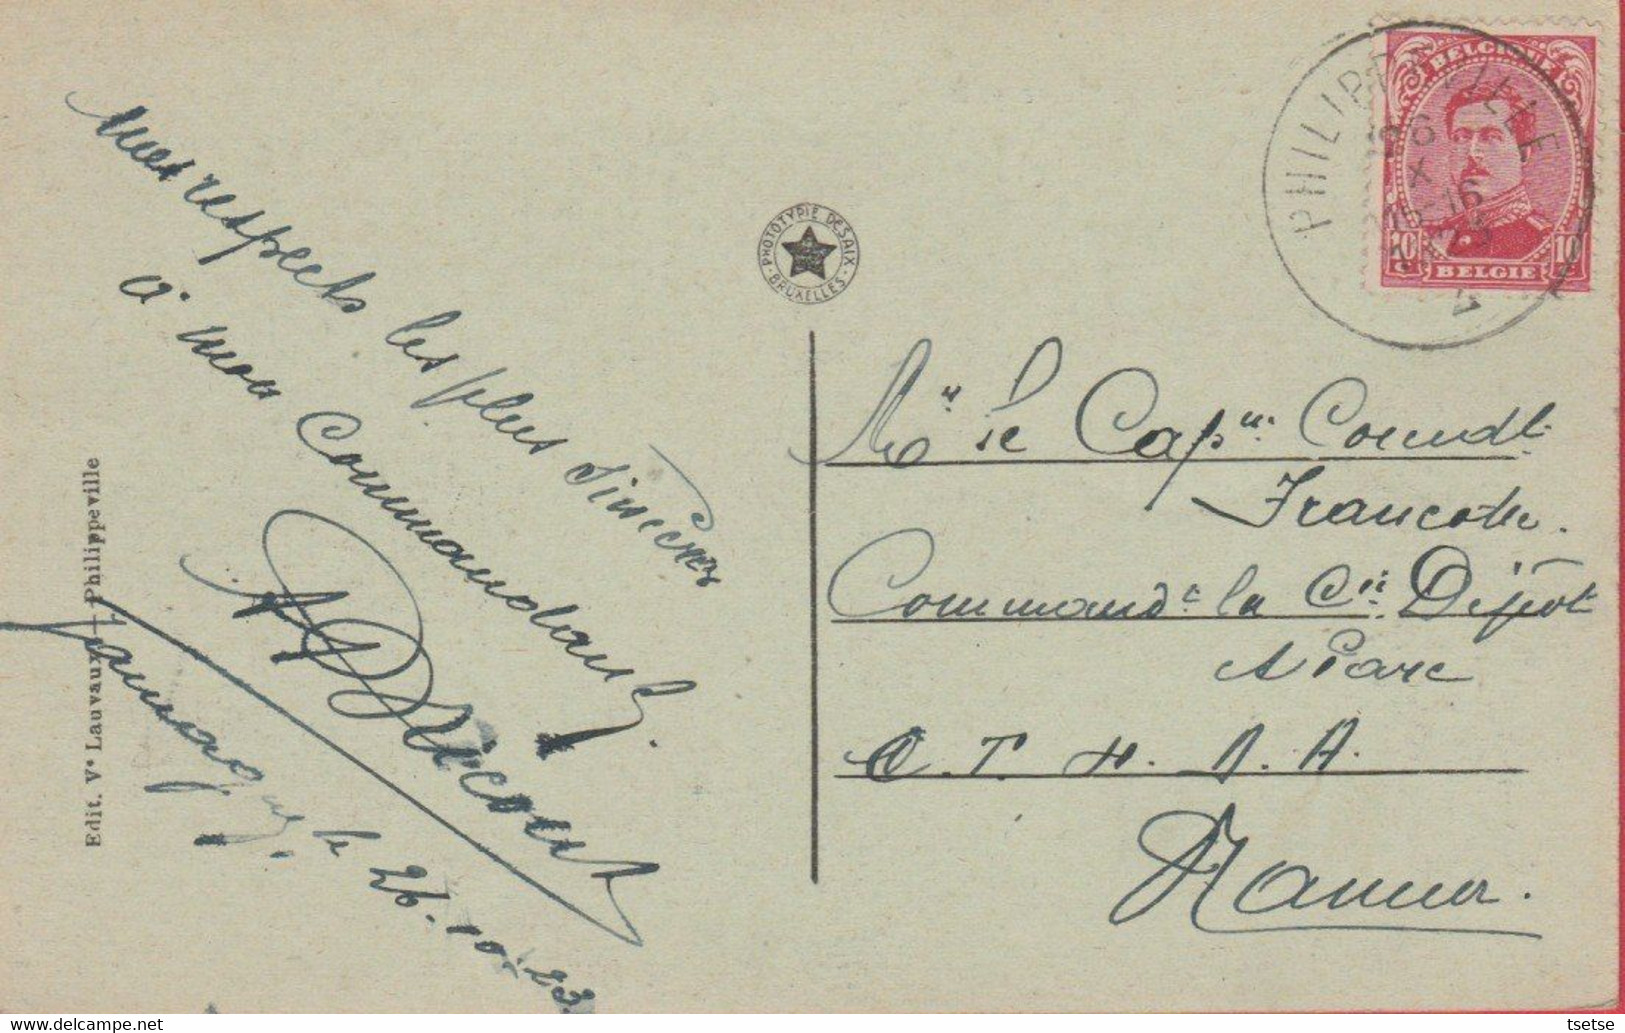 mes respects les plus sincères
à mon Commandant.
Delécourt
Jamagne, le 26.10.23
Edit. Vᵉ Lauvaux — Philippeville
PHOTOTYPIE DESAIX
BRUXELLES
PHILIPPEVILLE
26
X
15-16
1923
BELGIQUE
10 10
BELGIE
Mʳ le Capⁿᵉ Commdt
Francotte.
Commandᵗ la Cⁱᵉ Dépôt
& Parc
T. A.
Namur.
tsetse
delcampe.net